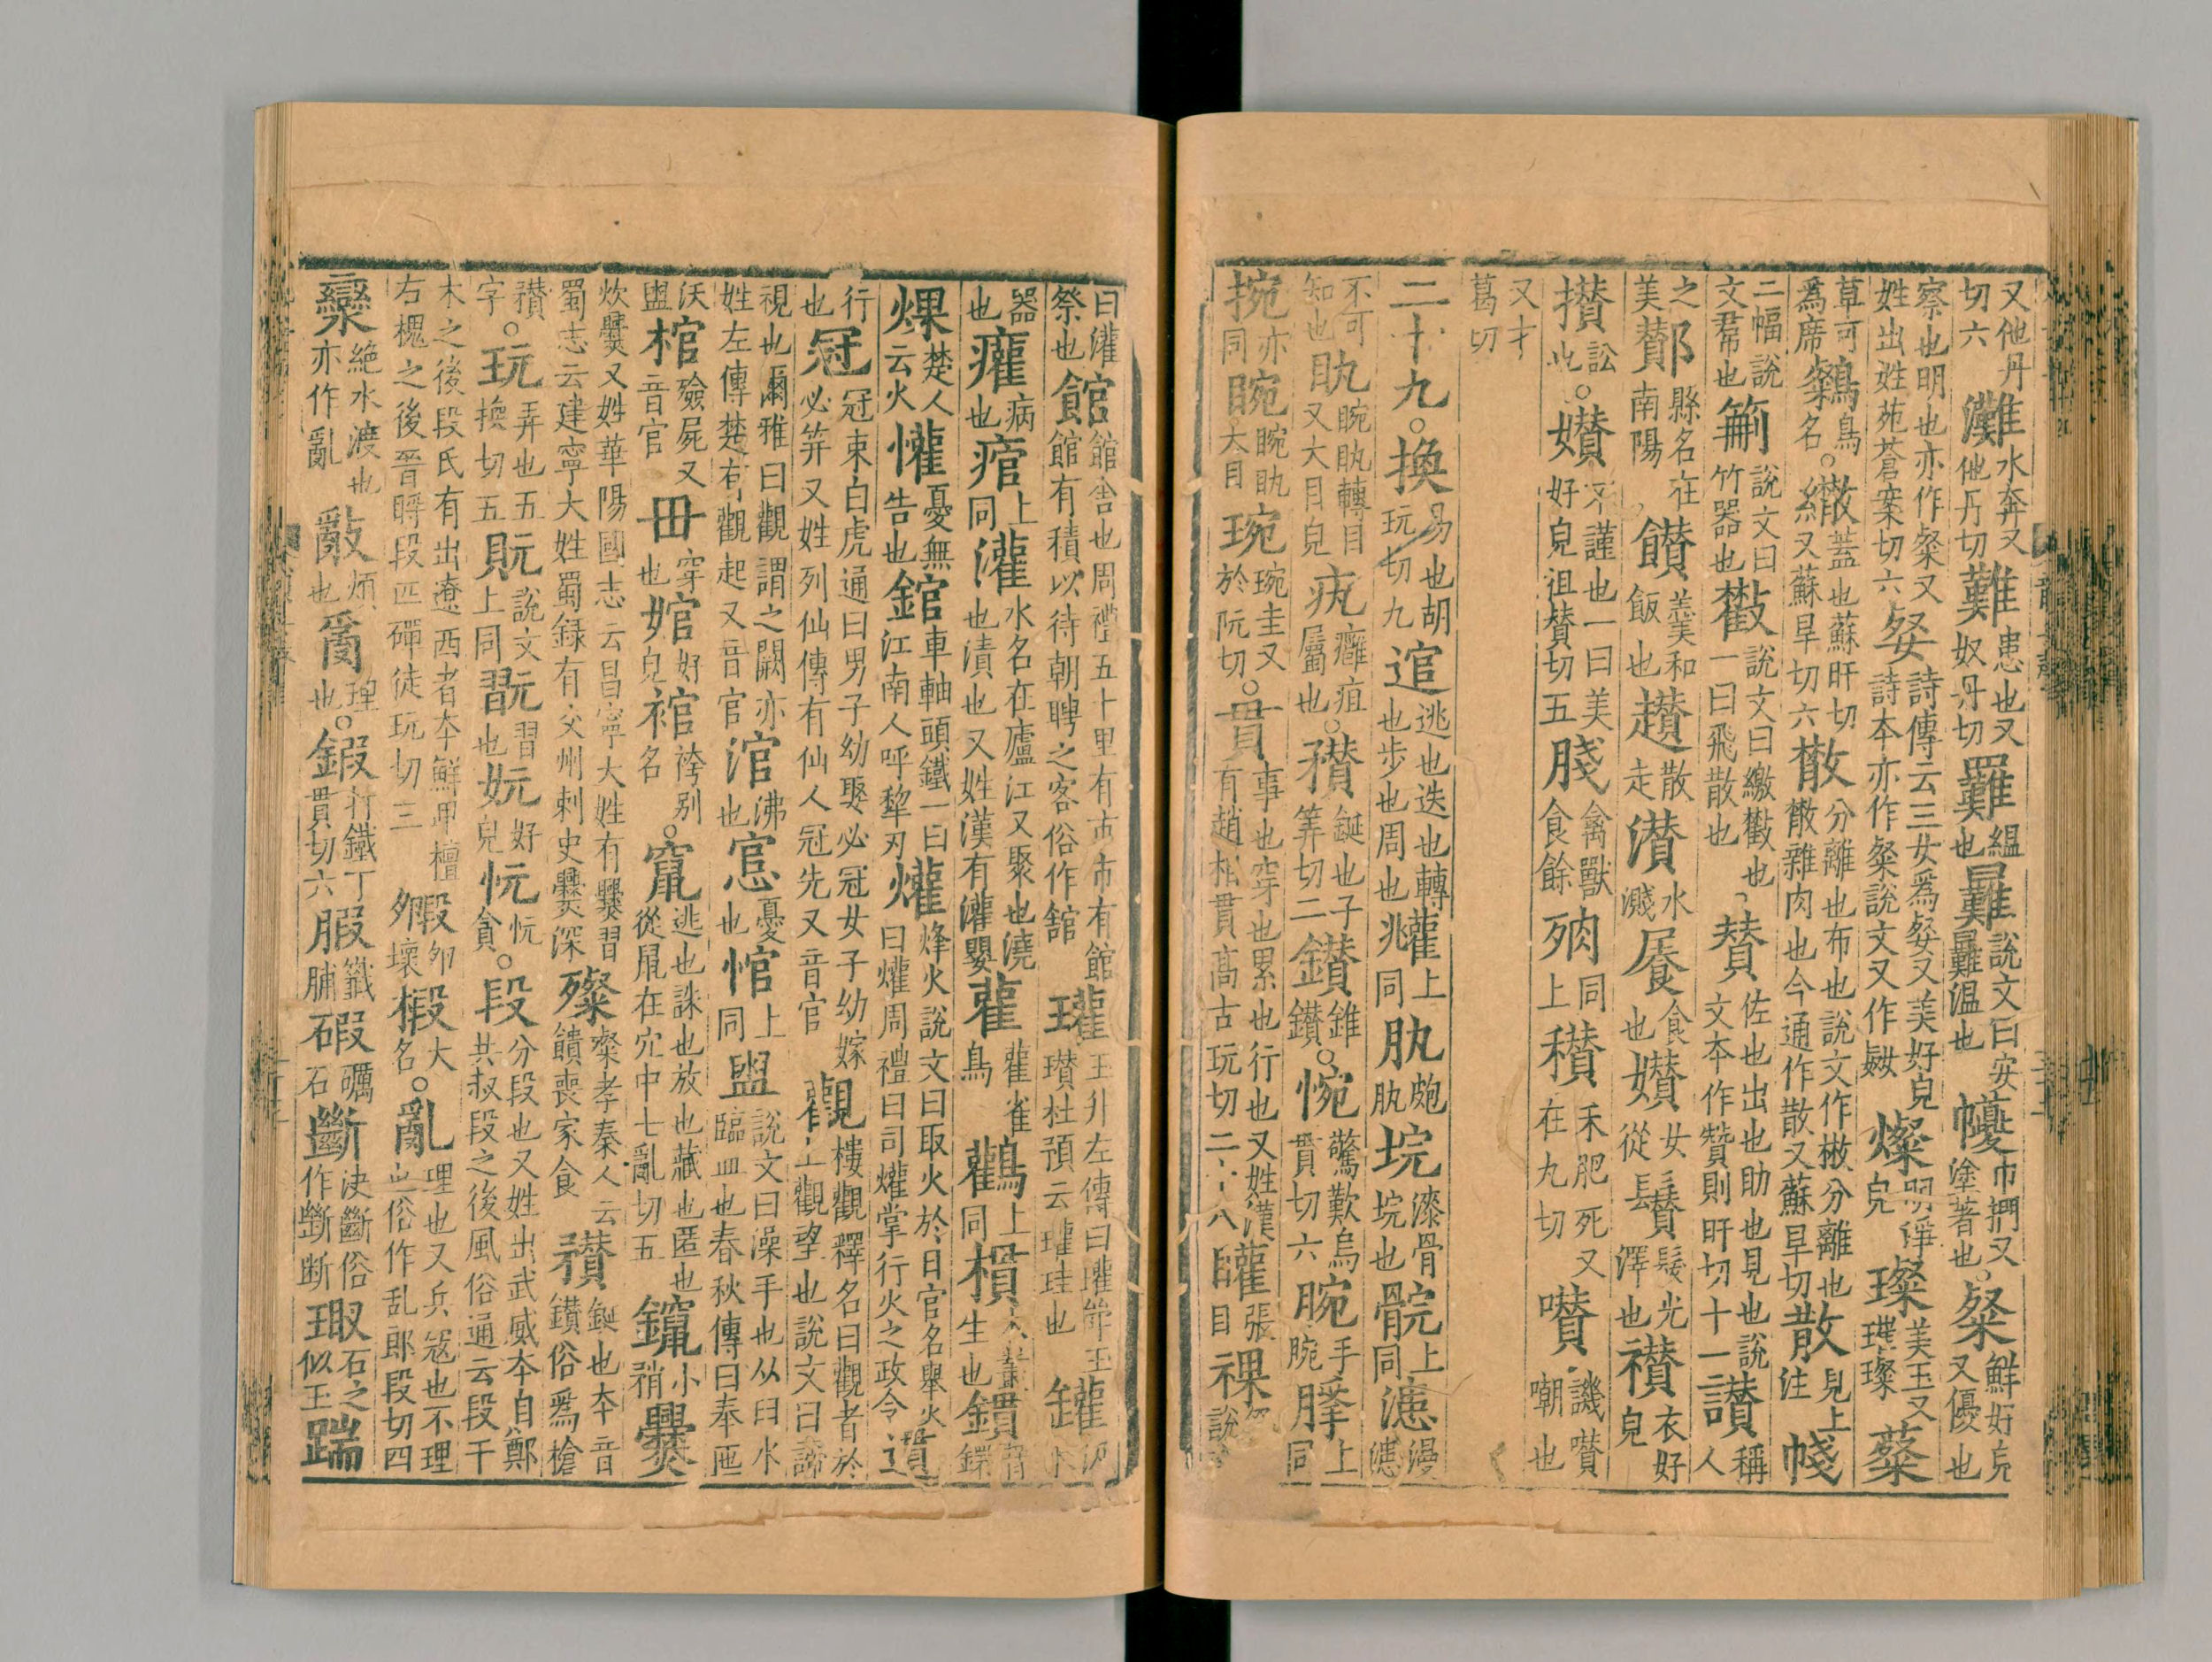 又他丹切六灘水奔又他丹切難患也又奴丹切𦌠緼也㬮說文曰安㬮温也幔巾㨺又塗著也○粲鮮好皃又優也
察也明也亦作粲又姓出姓苑蒼案切六㛑詩傳云三女爲㛑又美好皃詩本亦作粲說文又作㛑燦明淨皃璨美玉又璀璨薒
草可爲席鷟鳥名○繖蓋也蘇旰切又蘇旱切六㪔分離也布也說文作㪔分離也散雜肉也今通作散又蘇旱切散見上注帴
二幅說文帬也䉈說文曰竹器也㪚說文曰繳㪚也一曰飛散也○賛佐也出也助也見也說文本作贊則旰切十一讚稱人
之美酇縣名在南陽饡羹和飯也趲散走灒水濺𩞙食也㜺女從鬕髮光澤也襸衣好皃
攢訟也○㜺不謹也一曰美好皃徂賛切五䏼禽獸食餘𣦼同上穳禾肥死又在九切囋譏囋嘲也
又才葛切
二十九○換易也胡玩切九逭逃也迭也轉也步也周也雚上同兆肒皰肒垸漆骨垸也䯘上同漶漫漶
不可知也䀛睕䀛轉目又大目皃疻癰疽屬也○穳鋋也子筭切二鑽錐鑽○惋驚歎烏貫切六腕手腕𢯲上同
捥亦同睕睕䀛大目琬琬圭又於阮切○貫事也穿也累也行也又姓漢有趙相貫高古玩切二十八矔張目祼說文
曰灌祭也館館舍也周禮五十里有市市有館館有積以待朝聘之客俗作舘瓘玉升左傳曰瓘斝玉瓚杜預云瓘珪也罐汲水
器也癯病也痯上同灌水名在廬江又聚也澆也漬也又姓漢有灌嬰雚雚雀鳥鸛上同樌木叢生也鑵
爟楚人云火懽憂無告也錧車軸頭鐵一曰江南人呼犂刃爟烽火說文曰取火於日官名舉火曰爟周禮曰司爟掌行火之政令遺
行也冠冠束白虎通曰男子幼娶必冠女子幼嫁必笄又姓列仙傳有仙人冠先又音官觀樓觀釋名曰觀者於上觀望也說文曰諦
視也爾雅曰觀謂之闕亦姓左傳楚有觀起又音官涫沸也悹憂也悺上同盥說文曰澡手也从臼水臨皿也春秋傳曰奉匜
沃盥棺殮屍又音官毌穿也婠好皃䘾袴別名○竄逃也誅也放也藏也匿也從鼠在穴中七亂切五鑹小矟爨
炊爨又姓華陽國志云昌寧大姓有爨習蜀志云建寧大姓蜀録有交州刺史爨深㸑㸑孝秦人云饋喪家食穳鋋也本音鑽俗爲槍
穳字○玩弄也五換切五貦說文上同翫習也妧好皃忨忨貪○段分段也又姓出武威本自鄭共叔段之後風俗通云段干
木之後段氏有出遼西者本鮮卑檀右槐之後晉時段匹磾徒玩切三㱭㱭卵壞椴木名○亂理也又兵寇也不理也俗作乱郎段切四
灓絕水渡也亦作亂𢿢煩也𤔔理也○鍛打鐵丁貫切六腶籤脯碫礪石斷決斷俗作斷断瑖石之似玉踹